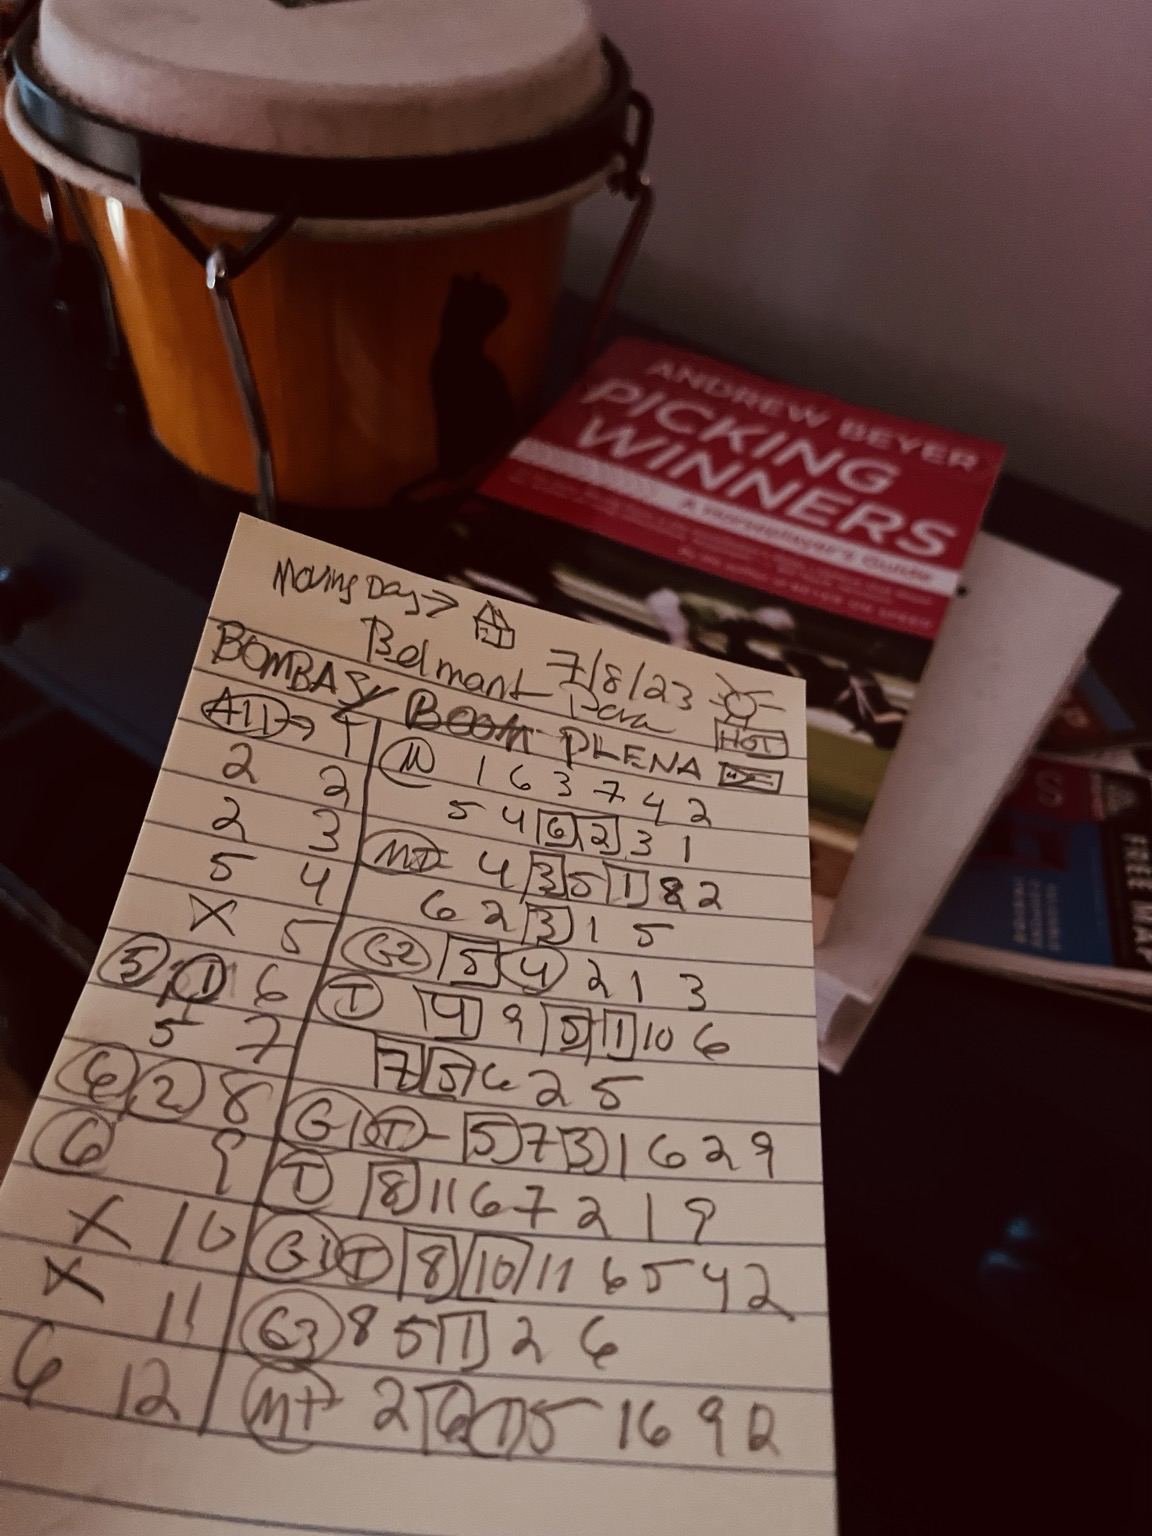 ANDREW BEYER
PICKING
WINNERS
A Horseplayer's Guide
FREE MAP
S
Moving Day →
Belmont 7/8/23
BOMBAS Y BOOM PLENA HOT
All → 1 M 1 6 3 7 4 2
2 2 5 4 6 2 3 1
2 3 4 3 5 1 8 2
5 4 6 2 3 1 5
X 5 G2 5 4 2 1 3
5 1 6 T 4 9 5 1 10 6
5 7 7 5 6 2 5
6 2 8 G1 T - 5 7 3 1 6 2 9
6 9 T 8 11 6 7 2 1 9
X 10 G1 T 8 10 11 6 5 4 2
X 11 G3 8 5 1 2 6
6 12 MT 2 6 1 5 16 9